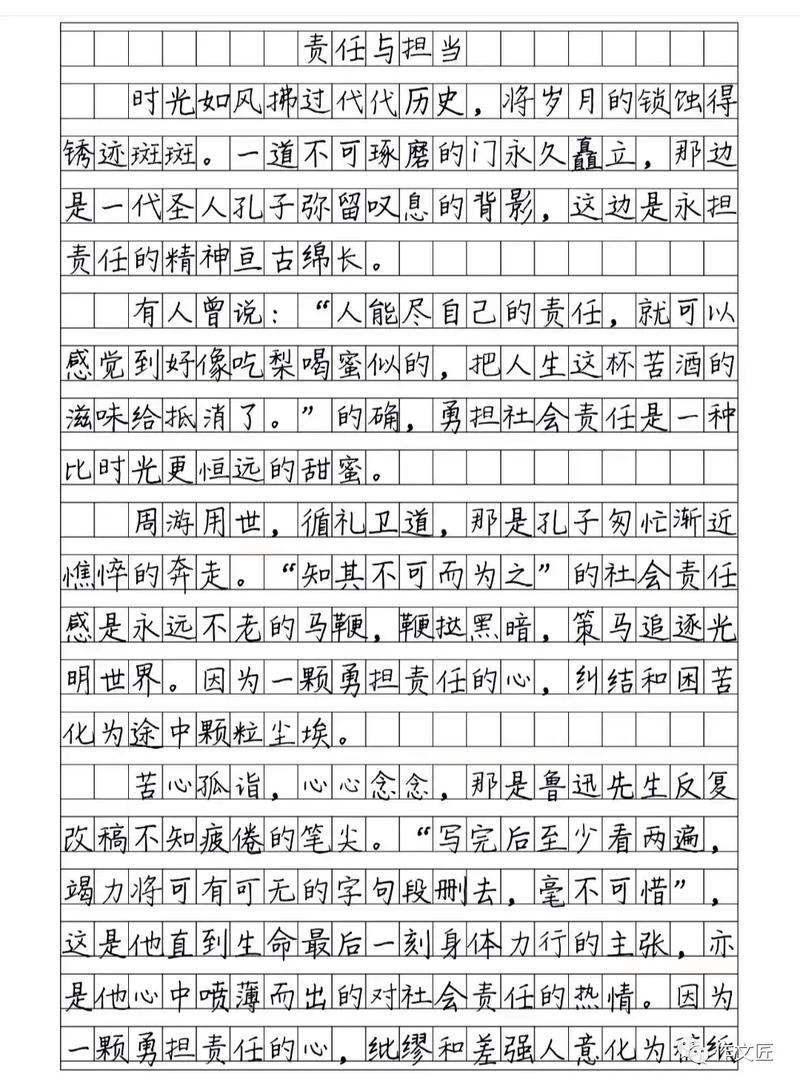 责任与担当
时光如风拂过代代历史，将岁月的锁蚀得
锈迹斑斑。一道不可琢磨的门永久矗立，那边
是一代圣人孔子弥留叹息的背影，这边是永担
责任的精神亘古绵长。
有人曾说：“人能尽自己的责任，就可以
感觉到好像吃梨喝蜜似的，把人生这杯苦酒的
滋味给抵消了。”的确，勇担社会责任是一种
比时光更恒远的甜蜜。
周游用世，循礼卫道，那是孔子匆忙渐近
憔悴的奔走。“知其不可而为之”的社会责任
感是永远不老的马鞭，鞭挞黑暗，策马追逐光
明世界。因为一颗勇担责任的心，纠结和困苦
化为途中颗粒尘埃。
苦心孤诣，心心念念，那是鲁迅先生反复
改稿不知疲倦的笔尖。“写完后至少看两遍，
竭力将可有可无的字句段删去，毫不可惜”，
这是他直到生命最后一刻身体力行的主张，亦
是他心中喷薄而出的对社会责任的热情。因为
一颗勇担责任的心，纰缪和差强人意化为
作文匠